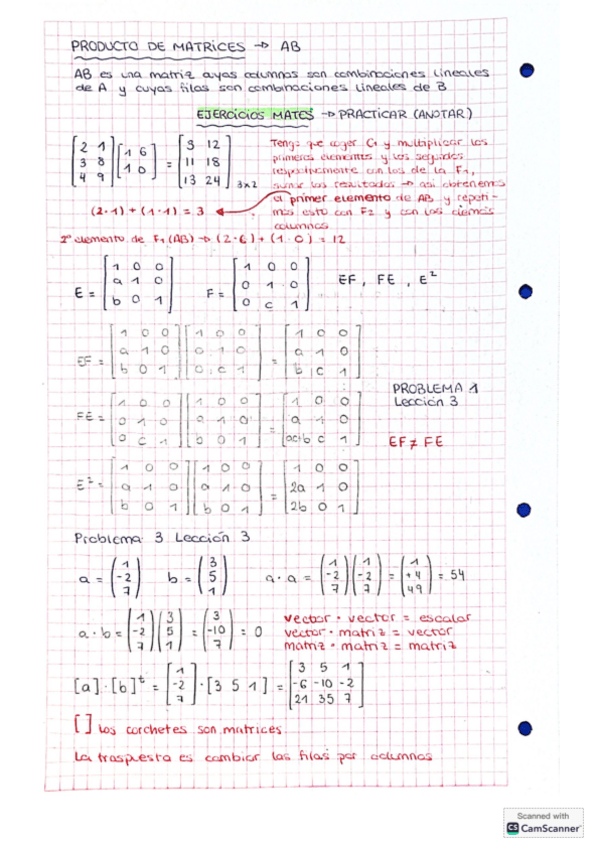 PRODUCTO DE MATRICES → AB
AB es una matriz cuyas columnas son combinaciones lineales
de A y cuyas filas son combinaciones lineales de B
EJERCICIOS MATES → PRACTICAR (ANOTAR)
[2 1; 3 8; 4 9] [1 6; 1 0] = [3 12; 11 18; 13 24] 3x2
Tengo que coger C1 y multiplicar los
primeros elementos y los segundos
respectivamente con los de la F1,
sumar los resultados → así obtenemos
el primer elemento de AB y repeti-
mos esto con F2 y con las demás
columnas
(2·1) + (1·1) = 3
2º elemento de F1 (AB) → (2·6) + (1·0) = 12
E = [1 0 0; a 1 0; b 0 1] F = [1 0 0; 0 1 0; 0 c 1] EF, FE, E²
EF = [1 0 0; a 1 0; b 0 1] [1 0 0; 0 1 0; 0 c 1] = [1 0 0; a 1 0; b c 1]
PROBLEMA 1
Lección 3
FE = [1 0 0; 0 1 0; 0 c 1] [1 0 0; a 1 0; b 0 1] = [1 0 0; a 1 0; ac+b c 1]
EF ≠ FE
E² = [1 0 0; a 1 0; b 0 1] [1 0 0; a 1 0; b 0 1] = [1 0 0; 2a 1 0; 2b 0 1]
Problema 3 Lección 3
a = (1; -2; 7) b = (3; 5; 1) a·a = (1; -2; 7) (1; -2; 7) = (1; +4; 49) = 54
a·b = (1; -2; 7) (3; 5; 1) = (3; -10; 7) = 0
vector · vector = escalar
vector · matriz = vector
matriz · matriz = matriz
[a]·[b]ᵗ = [1; -2; 7] · [3 5 1] = [3 5 1; -6 -10 -2; 21 35 7]
[ ] Los corchetes son matrices
La traspuesta es cambiar las filas por columnas
Scanned with
CS CamScanner